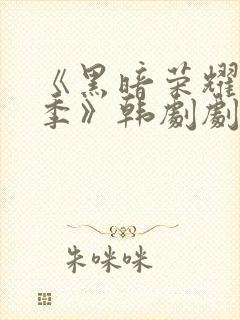 《黑暗荣耀
季》韩剧剧
朱咪咪